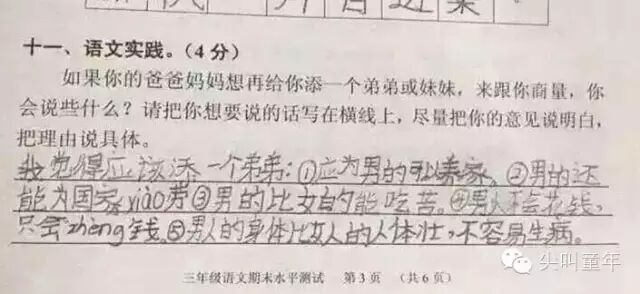 十一、语文实践。(4分)
如果你的爸爸妈妈想再给你添一个弟弟或妹妹，来跟你商量，你
会说些什么？请把你想要说的话写在横线上，尽量把你的意见说明白，
把理由说具体。
我觉得应该添一个弟弟：①应为男的可以养家。②男的还
能为国家xiào劳③男的比女的能吃苦。④男人不会花钱，
只会zhèng钱。⑤男人的身体比女人的人体壮，不容易生病。
三年级语文期末水平测试 第3页 （共6页）
尖叫童年